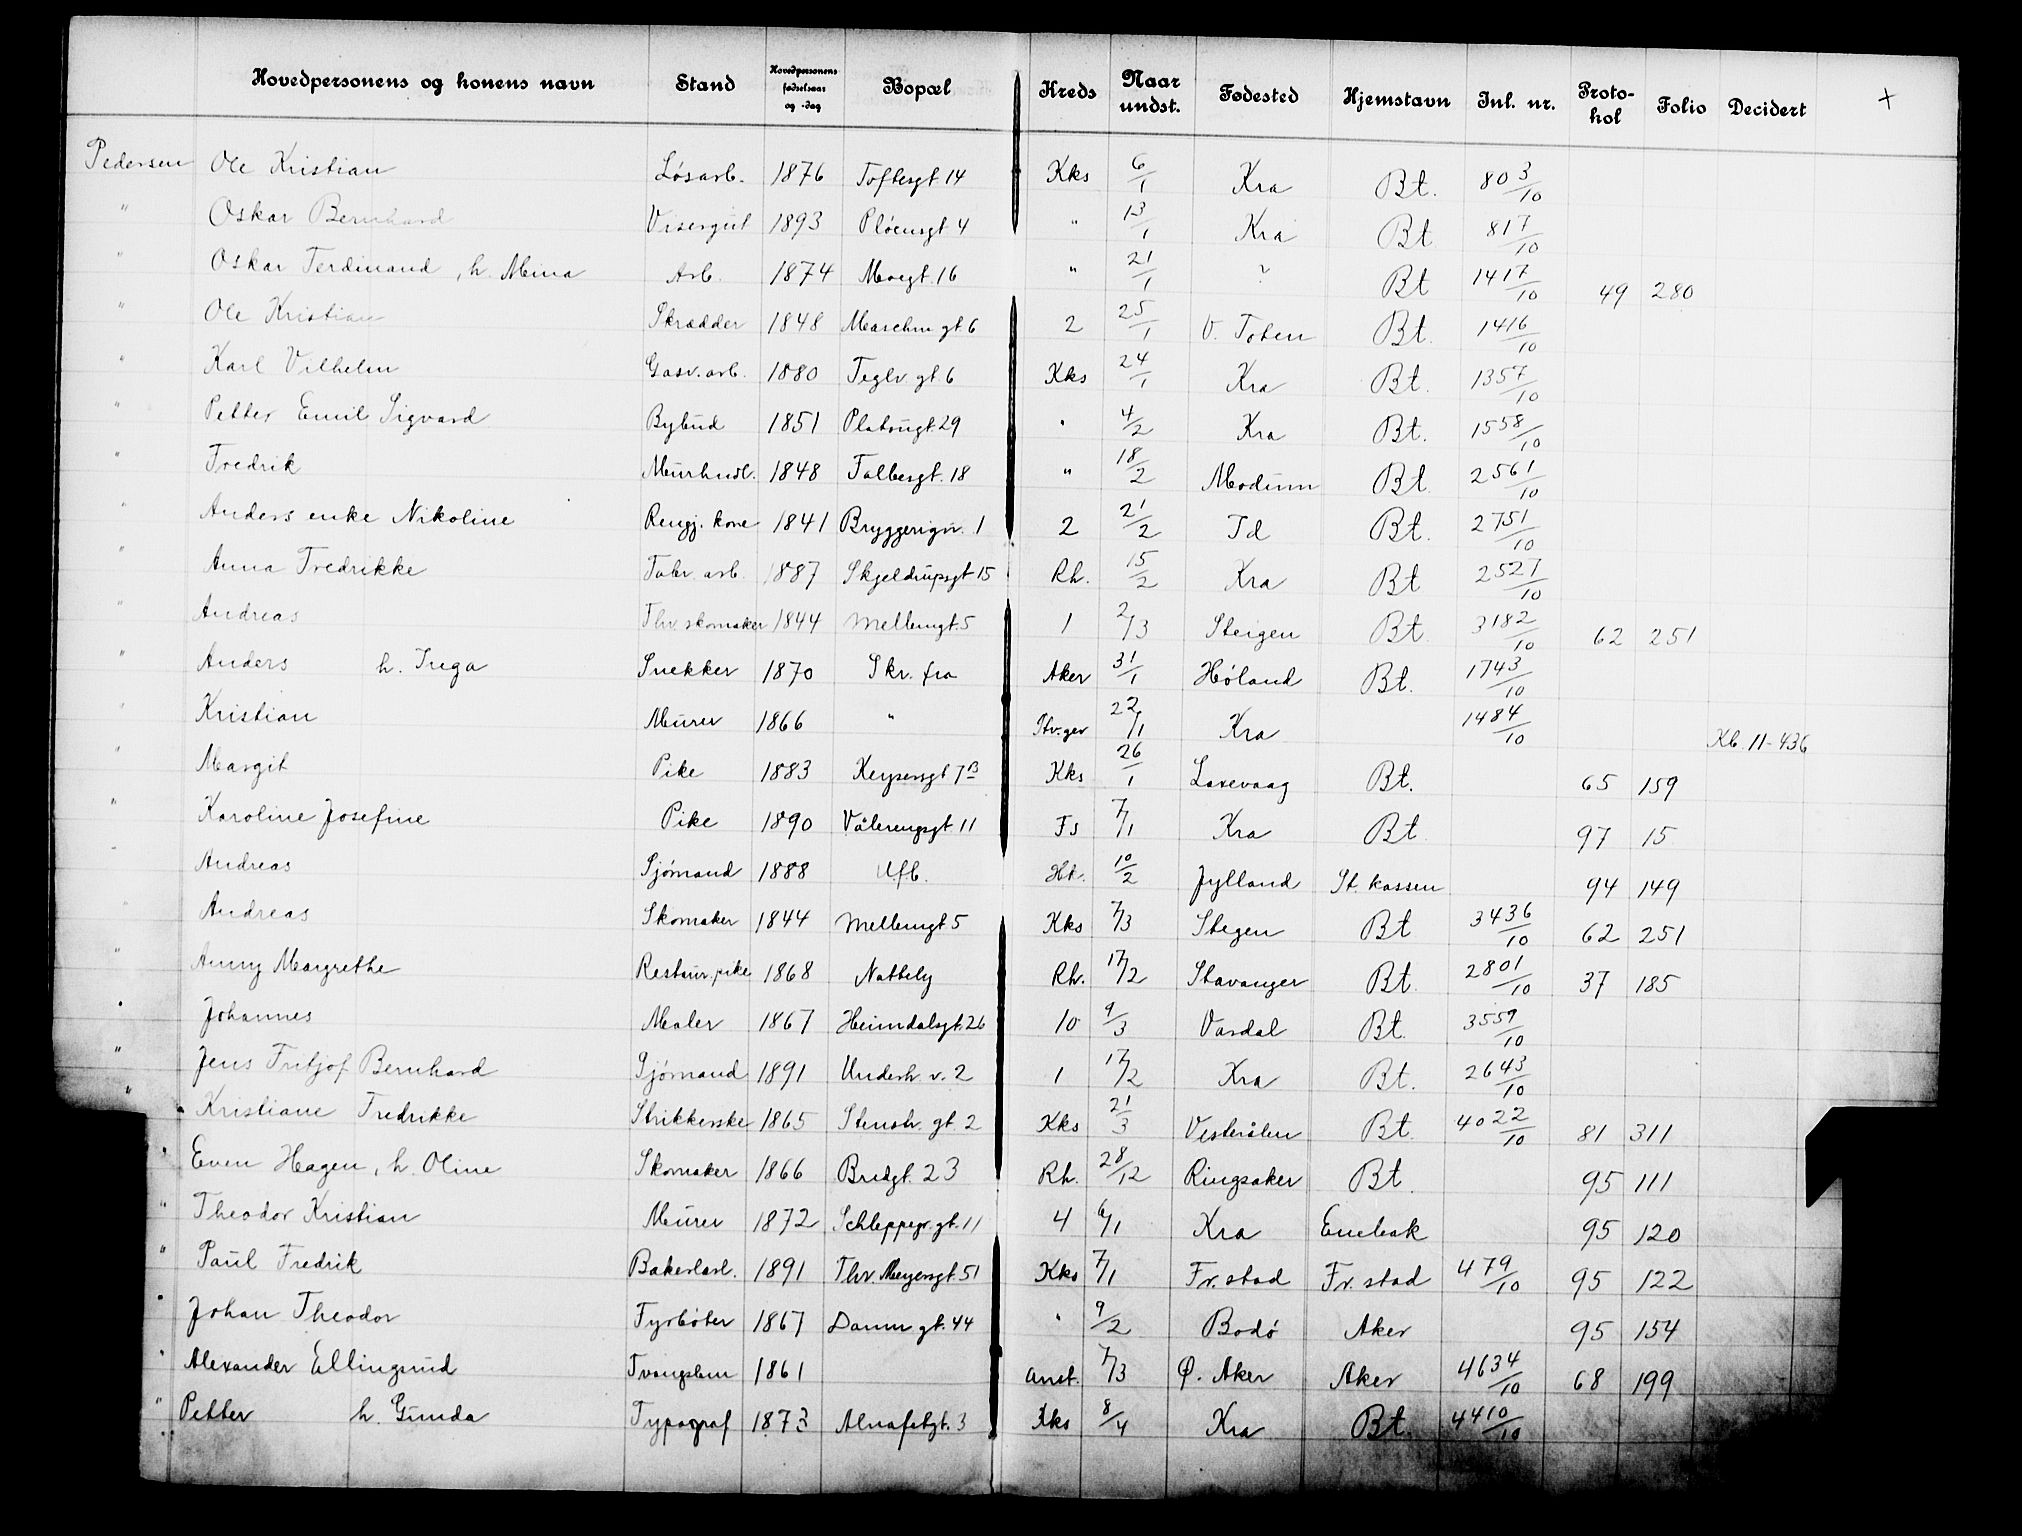 Hovedpersonens og konens navn Stand Hovedpersonens fødselsaar og -dag Bopæl Kreds Naar undst. Fødested Hjemstavn Inl. nr. Protokol Folio Decidert +
Pedersen Ole Kristian Løsarb. 1876 Toftesgt 14 Kks 6/1 Kra Bt. 803/10
" Oskar Bernhard Visergut 1893 Pløensgt 4 " 13/1 Kra Bt 817/10
" Oskar Ferdinand, h. Mina Arb. 1874 Moegt. 16 " 21/1 ? Bt 1417/10 49 280
" Ole Kristian Skrædder 1848 Maschm gt 6 2 25/1 V. Toten Bt. 1416/10
" Karl Vilhelm Gasv. arb. 1880 Teglv. gt 6 Kks 24/1 Kra Bt. 1357/10
" Petter Emil Sigvard Bybud 1851 Platougt. 29 " 4/2 Kra Bt. 1558/10
" Fredrik Murhndl. 1848 Falbesgt. 18 " 18/2 Modum Bt. 2561/10
" Anders enke Nikoline Rengj. kone 1841 Bryggerigv. 1 2 21/2 Td Bt. 2751/10
" Anna Fredrikke Fabr. arb. 1887 Skjeldrupsgt 15 Rh. 15/2 Kra Bt 2527/10
" Andreas Thv. skomaker 1844 Mellemgt. 5 1 2/3 Steigen Bt. 3182/10 62 251
" Anders h. Inga Snekker 1870 Skr. fra Aker 31/1 Høland Bt. 1743/10
" Kristian Murer 1866 " 22/1 Kra 1484/10 Kb. 11-436
" Margit Pike 1883 Keysersgt 7 B Kks 26/1 Laxevaag Bt. 65 159
" Karoline Josefine Pike 1890 Vålerengsgt 11 Fs 7/1 Kra Bt. 97 15
" Andreas Sjømand 1888 Ufb. Hk. 10/2 Jylland St. kassen 94 149
" Andreas Skomaker 1844 Mellemgt 5 Kks 7/3 Stegen Bt 3436/10 62 251
" Anny Margrethe Restaur. pike 1868 Nattely Rh. 17/2 Stavanger Bt. 2801/10 37 185
" Johannes Maler 1867 Heimdalsgt. 26 10 9/3 Vardal Bt. 3559/10
" Jens Fritjof Bernhard Sjømand 1891 Underh. v. 2 1 17/2 Kra Bt. 2643/10
" Kristiane Fredrikke Strikkerske 1865 Stenstr. gt. 2 Kks 21/3 Vesterålen Bt. 4022/10 81 311
" Even Hagen, h. Oline Skomaker 1866 Bredgt. 23 Rh. 28/12 Ringsaker Bt. 95 111
" Theodor Kristian Murer 1872 Schleppegr. gt. 11 4 6/1 Kra Enebak 95 120
" Paul Fredrik Bakerlærl. 1891 Thv. Meyersgt. 51 Kks 7/1 Fr. stad Fr. stad 479/10 95 122
" Johan Theodor Fyrbøter 1867 Damm gt. 44 " 9/2 Bodø Aker 95 154
" Alexander Ellingsrud Tvangslem 1861 anst. 7/3 Ø. Aker Aker 4634/10 68 199
" Petter h. Gunda Typograf 1873 Alnafetgt. 3 Kks 8/4 Kra Bt. 4410/10